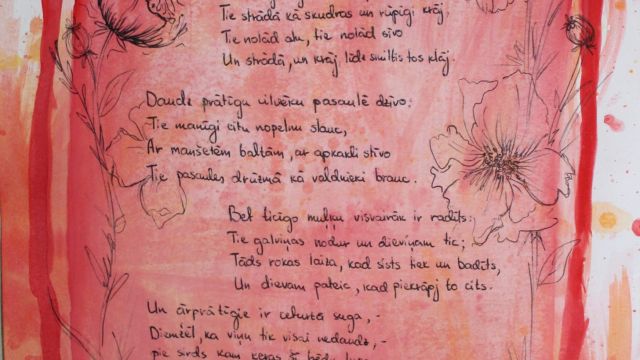 Tie strādā kā skudras un rūpīgi krāj.
Tie nolād alu, tie nolād sīvo
Un strādā, un krāj līdz smiltis tos klāj.
Daudz prātīgu cilvēku pasaulē dzīvo:
Tie manīgi citu nopelnu slauc,
Ar manšetēm baltām, ar apkakli stīvo
Tie pasaules drūzmā kā valdnieki brauc.
Bet ticīgo muļķu visvairāk ir radīts:
Tie galviņas nodur un dieviņam tic;
Tāds rokas laiza, kad sists tiek un badīts,
Un dievam pateic, kad piekrāpj to cits.
Un ārprātīgie ir ceturtā suga, -
Diemžēl, ka viņu tik visai nedaudz, -
pie sirds kam ķeras šī bēdu